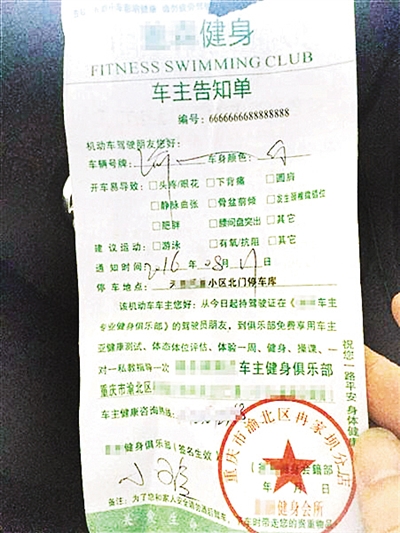 健身
FITNESS SWIMMING CLUB
车主告知单
编号：6666666688888888
机动车驾驶朋友您好：
车辆号牌： 车身颜色：
开车易导致：□头疼/眼花 □下背痛 □圆肩
□静脉曲张 □骨盆前倾 □发生颈椎病错位
□肥胖 □腰间盘突出 □其它
建议运动：□游泳 □有氧/抗阻 □其它
通知时间：2016年08月 日
停车地点： 小区北门停车库
该机动车车主您好：从今日起持驾驶证在《 车主
专业健身俱乐部》的驾驶员朋友，到俱乐部免费享用车主
亚健康测试、体态体位评估、体验一周、健身、操课、一
对一私教指导一次 车主健身俱乐部
重庆市渝北区
车主健康咨询热线：
健身俱乐部（签名生效）
备注：为了您和家人安全请勿酒后驾车， 车时带走您的贵重物品
祝您一路平安 身体健康
重庆市渝北区冉家坝分店
健身会籍部
年 月 日
健身会所